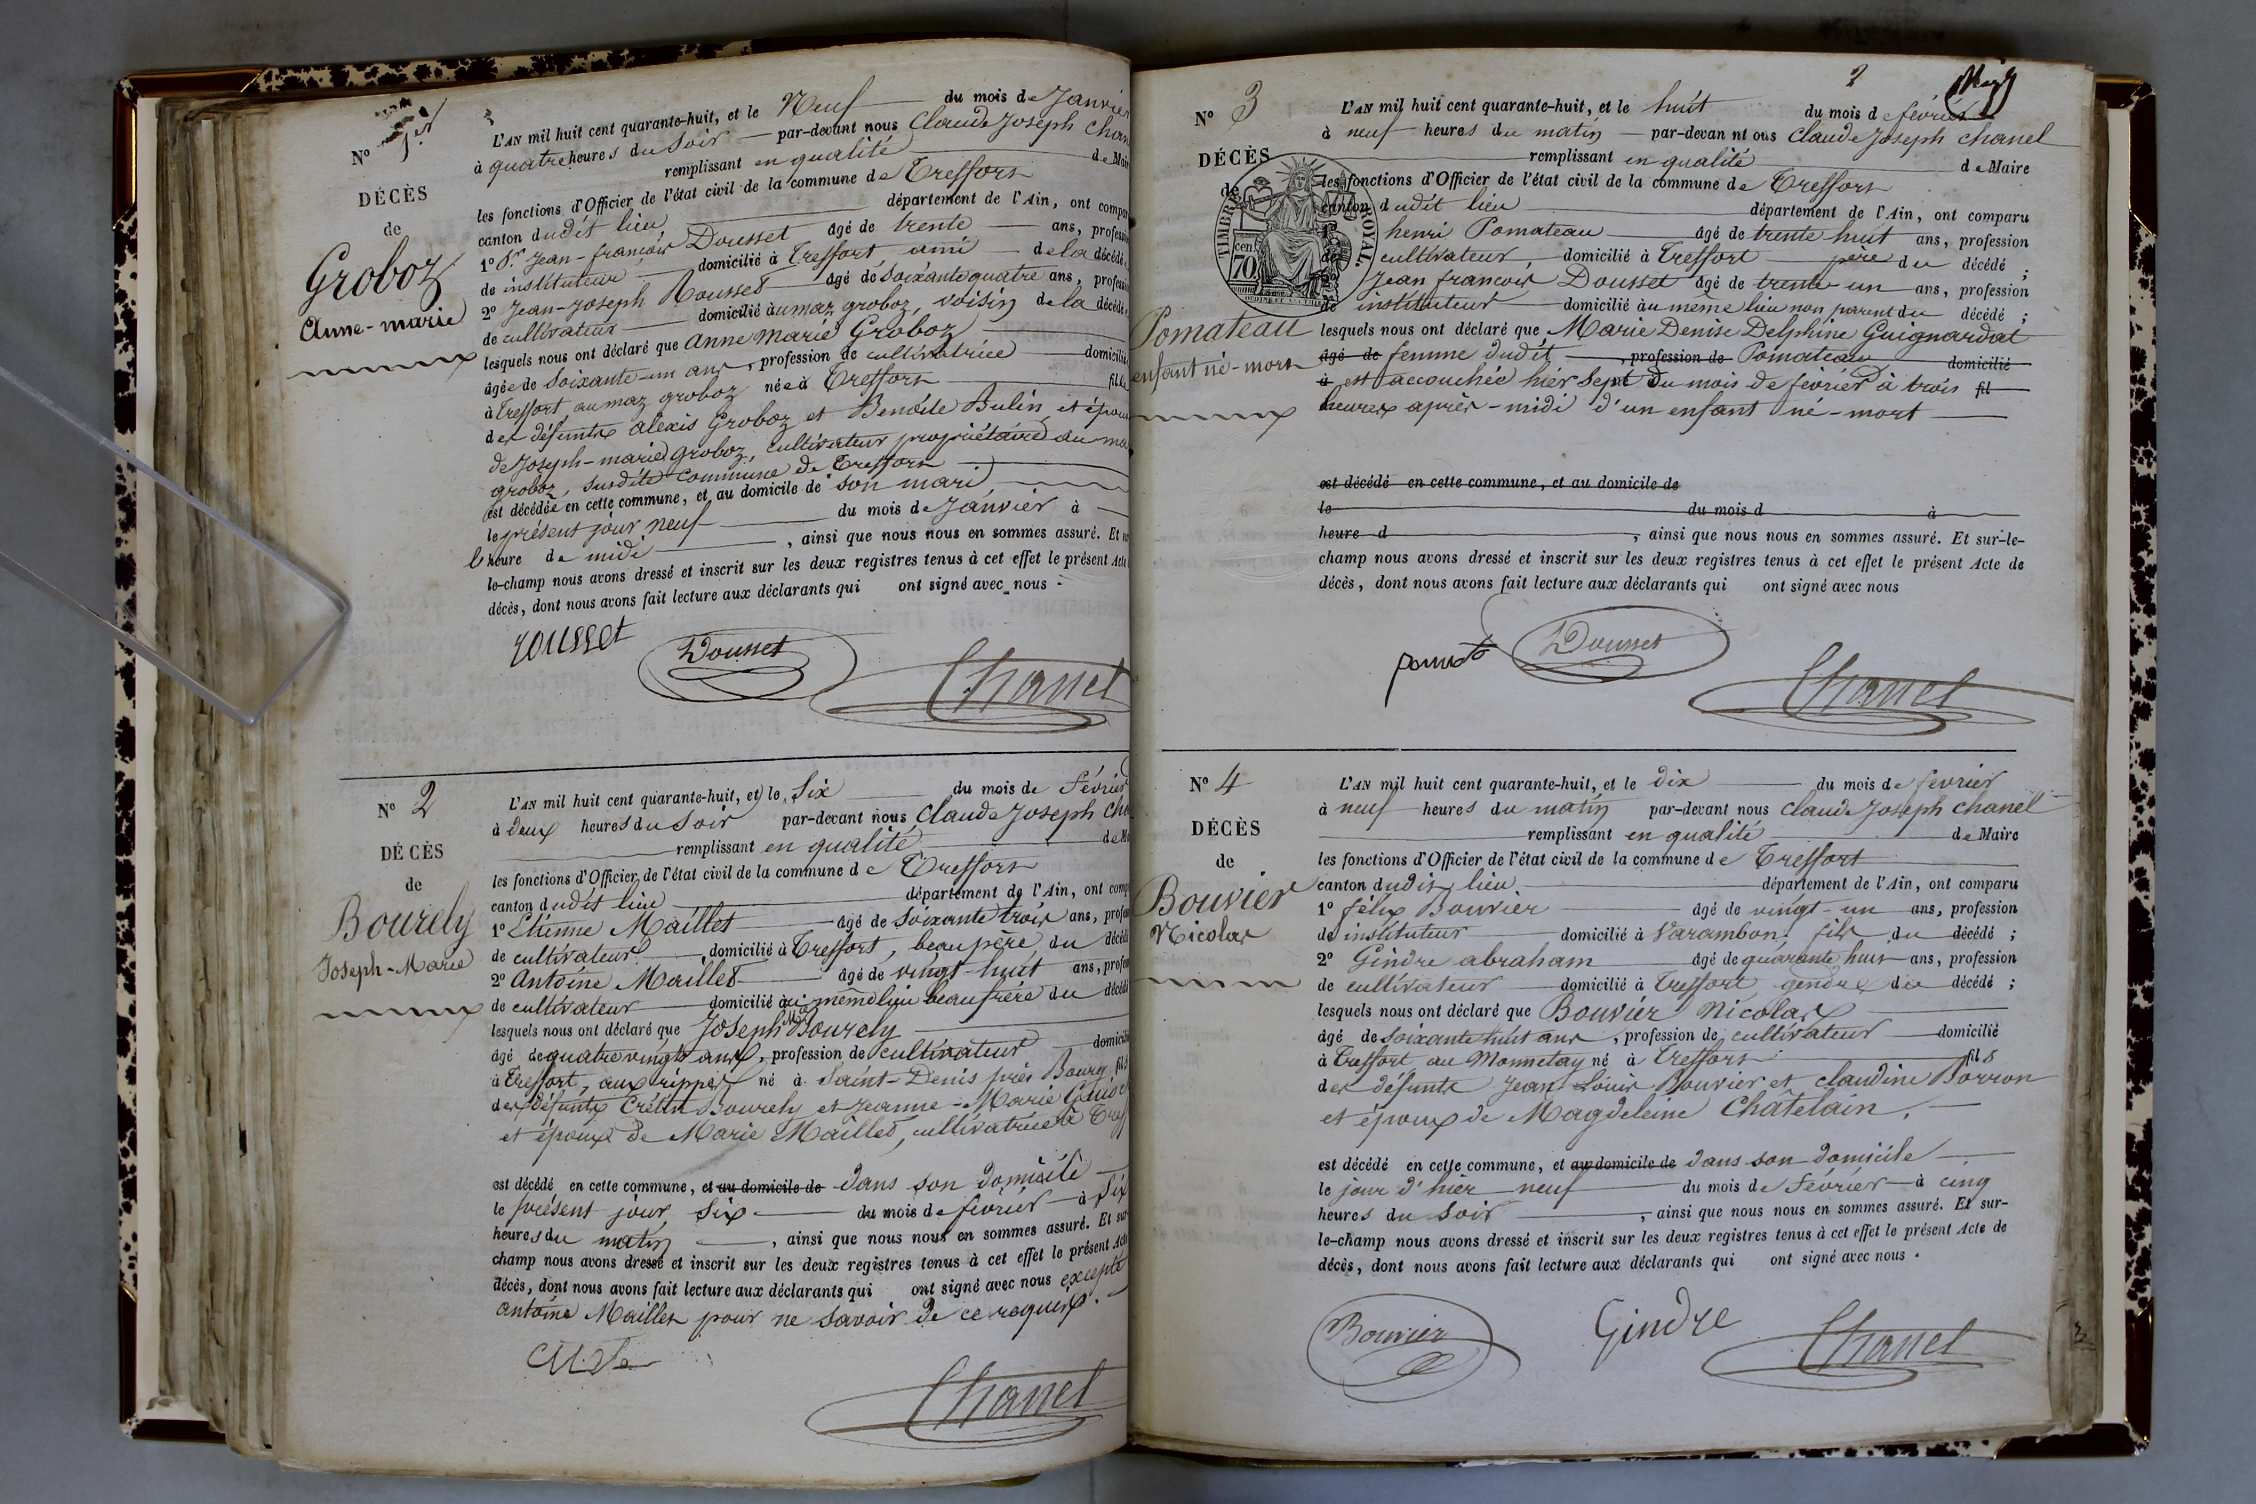 No 1er
DÉCÈS
de
Groboz
Anne-marie
L'AN mil huit cent quarante-huit, et le Neuf du mois de Janvier
à quatre heures du Soir par-devant nous Claude Joseph Chan
remplissant en qualité de Mair
les fonctions d'Officier de l'état civil de la commune de Treffort
canton dudit lieu département de l'Ain, ont compa
1o Sr Jean-françois Dousset âgé de trente ans, profession
de instituteur domicilié à Treffort, ami de la décédée
2o Jean-Joseph Rousset âgé de soixante quatre ans, profession
de cultivateur domicilié au maz groboz, voisin de la décédée
lesquels nous ont déclaré que Anne Marie Groboz
âgée de soixante-un ans, profession de cultivatrice domicilié
à Treffort au maz groboz née à Treffort fille
des défunts alexis Groboz et Benoite Bulin, et épou
de Joseph-marie groboz, cultivateur propriétaire au ma
groboz, susdite commune de Treffort
est décédée en cette commune, et au domicile de son mari
le présent jour neuf du mois de Janvier à
l'heure de midi, ainsi que nous nous en sommes assuré. Et su
le-champ nous avons dressé et inscrit sur les deux registres tenus à cet effet le présent Acte
décès, dont nous avons fait lecture aux déclarants qui ont signé avec nous.
rousset
Dousset
Chanel
No 2
DÉCÈS
de
Bourely
Joseph-Marie
L'AN mil huit cent quarante-huit, et le Six du mois de Février
à deux heures du Soir par-devant nous Claude Joseph Cha
remplissant en qualité de Ma
les fonctions d'Officier de l'état civil de la commune de Treffort
canton dudit lieu département de l'Ain, ont comp
1o Etienne Maillet âgé de soixante trois ans, profes
de cultivateur, domicilié à Treffort, beau père du décédé
2o Antoine Maillet âgé de vingt-huit ans, profes
de cultivateur domicilié au même lieu beau frère du décédé
lesquels nous ont déclaré que Joseph Mie Bourely
âgé de quatre vingts ans, profession de cultivateur domicilié
à Treffort, aux rippes né à Saint-Denis près Bourg, fils
des défunts Bourely et Jeanne-Marie
et époux de Marie Maillet, cultivatrice à Tref
est décédé en cette commune, et au domicile de dans son domicile
le présent jour six du mois de février à six
heures du matin, ainsi que nous nous en sommes assuré. Et sur
champ nous avons dressé et inscrit sur les deux registres tenus à cet effet le présent Acte
décès, dont nous avons fait lecture aux déclarants qui ont signé avec nous excepté
antoine Maillet pour ne savoir de ce requis.
Chanel
2
No 3
DÉCÈS
de
TIMBRE ROYAL.
70 cen.
Pomateau
enfant né-mort
L'AN mil huit cent quarante-huit, et le huit du mois de février
à neuf heures du matin par-devan nt ous Claude Joseph Chanel
remplissant en qualité de Maire
les fonctions d'Officier de l'état civil de la commune de Treffort
canton dudit lieu département de l'Ain, ont comparu
henri Pomateau âgé de trente huit ans, profession
de cultivateur, domicilié à Treffort père du décédé ;
Jean françois Dousset âgé de trente-un ans, profession
de instituteur domicilié au même lieu non parent du décédé ;
lesquels nous ont déclaré que Marie Denise Delphine Guignardat
âgé de femme dudit, profession de Pomateau domicilié
à est accouchée hier sept du mois de février à trois fil
heures après-midi d'un enfant né-mort
est décédé en cette commune, et au domicile de
le du mois d à
heure d, ainsi que nous nous en sommes assuré. Et sur-le-
champ nous avons dressé et inscrit sur les deux registres tenus à cet effet le présent Acte de
décès, dont nous avons fait lecture aux déclarants qui ont signé avec nous
Dousset
Chanel
No 4
DÉCÈS
de
Bouvier
Nicolas
L'AN mil huit cent quarante-huit, et le dix du mois de fevrier
à neuf heures du matin par-devant nous Claude Joseph Chanel
remplissant en qualité de Maire
les fonctions d'Officier de l'état civil de la commune de Treffort
canton dudit lieu département de l'Ain, ont comparu
1o félix Bouvier âgé de vingt-un ans, profession
de instituteur domicilié à Varambon fils du décédé ;
2o Gindre abraham âgé de quarante huit ans, profession
de cultivateur domicilié à Treffort gendre du décédé ;
lesquels nous ont déclaré que Bouvier Nicolas
âgé de soixante huit ans, profession de cultivateur domicilié
à Treffort au Monnetay né à Treffort fils
des défunts Jean-Louis Bouvier et claudine Borron
et époux de Magdeleine Châtelain.
est décédé en cette commune, et au domicile de dans son domicile
le jour d'hier neuf du mois de Février à cinq
heures du Soir, ainsi que nous nous en sommes assuré. Et sur-
le-champ nous avons dressé et inscrit sur les deux registres tenus à cet effet le présent Acte de
décès, dont nous avons fait lecture aux déclarants qui ont signé avec nous.
Bouvier
Gindre
Chanel